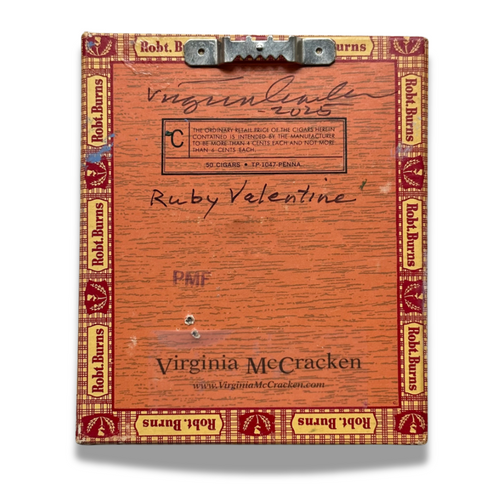 Robt. Burns
Burns
Virginia McCracken
2025
C
THE ORDINARY RETAIL PRICE OF THE CIGARS HEREIN
CONTAINED IS INTENDED BY THE MANUFACTURER
TO BE MORE THAN 4 CENTS EACH AND NOT MORE
THAN 4 CENTS EACH.
50 CIGARS • TP-1047-PENNA.
Ruby Valentine
PMF
Virginia McCracken
www.VirginiaMcCracken.com
Robt. Burns
Robt. Burns
Robt. Burns
Robt. Burns
Robt. Burns
Robt. Burns
Robt. Burns
Robt. Burns
Robt. Burns
Robt. Burns